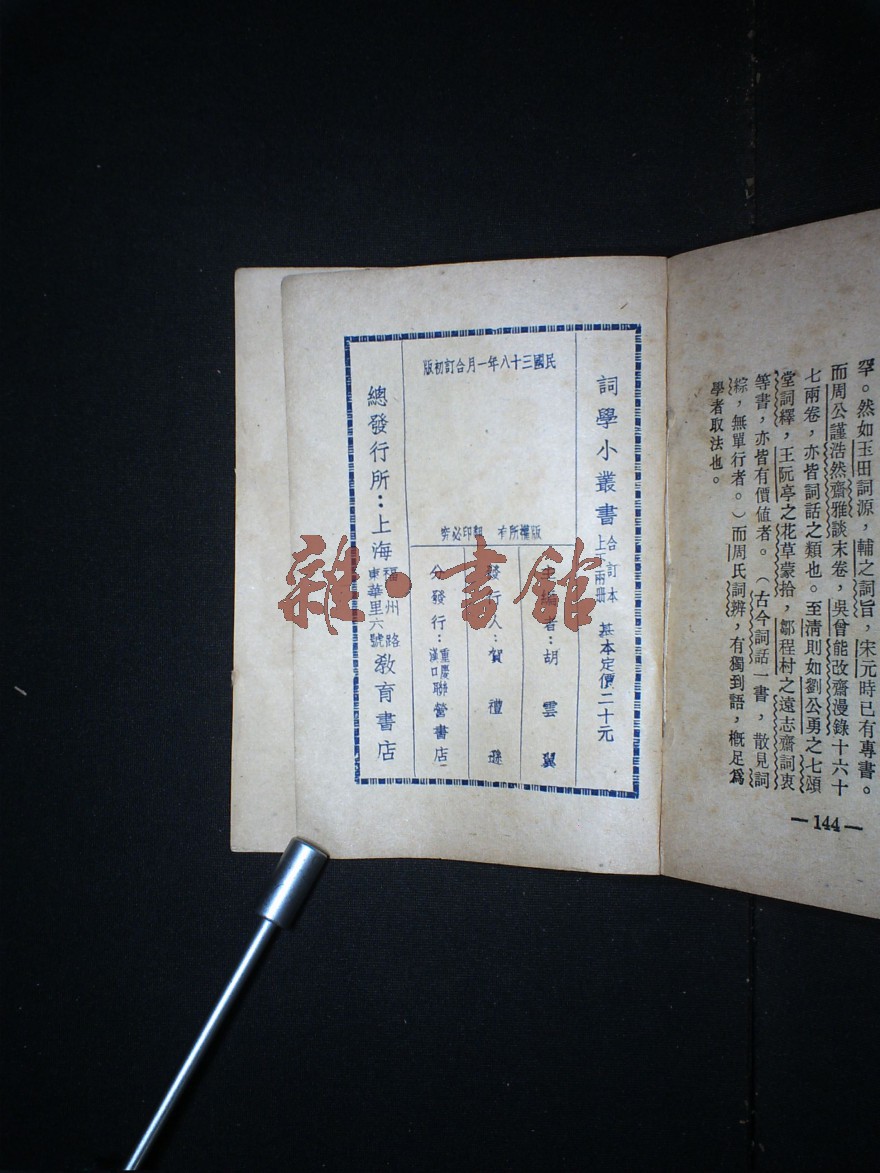 罕。然如玉田詞源，輔之詞旨，宋元時已有專書。
而周公謹浩然齋雅談末卷，吳曾能改齋漫錄十六十
七兩卷，亦皆詞話之類也。至清則如劉公勇之七頌
堂詞繹，王阮亭之花草蒙拾，鄒程村之遠志齋詞衷
等書，亦皆有價值者。（古今詞話一書，散見詞
綜，無單行者。）而周氏詞辨，有獨到語，概足爲
學者取法也。
—144—
詞學小叢書 合訂本 上下兩册 基本定價二十元
民國三十八年一月合訂初版
版權所有 翻印必究
主編者：胡雲翼
發行人：賀禮遜
分發行：重慶漢口聯營書店
總發行所：上海福州路東華里六號教育書店
雜·書館